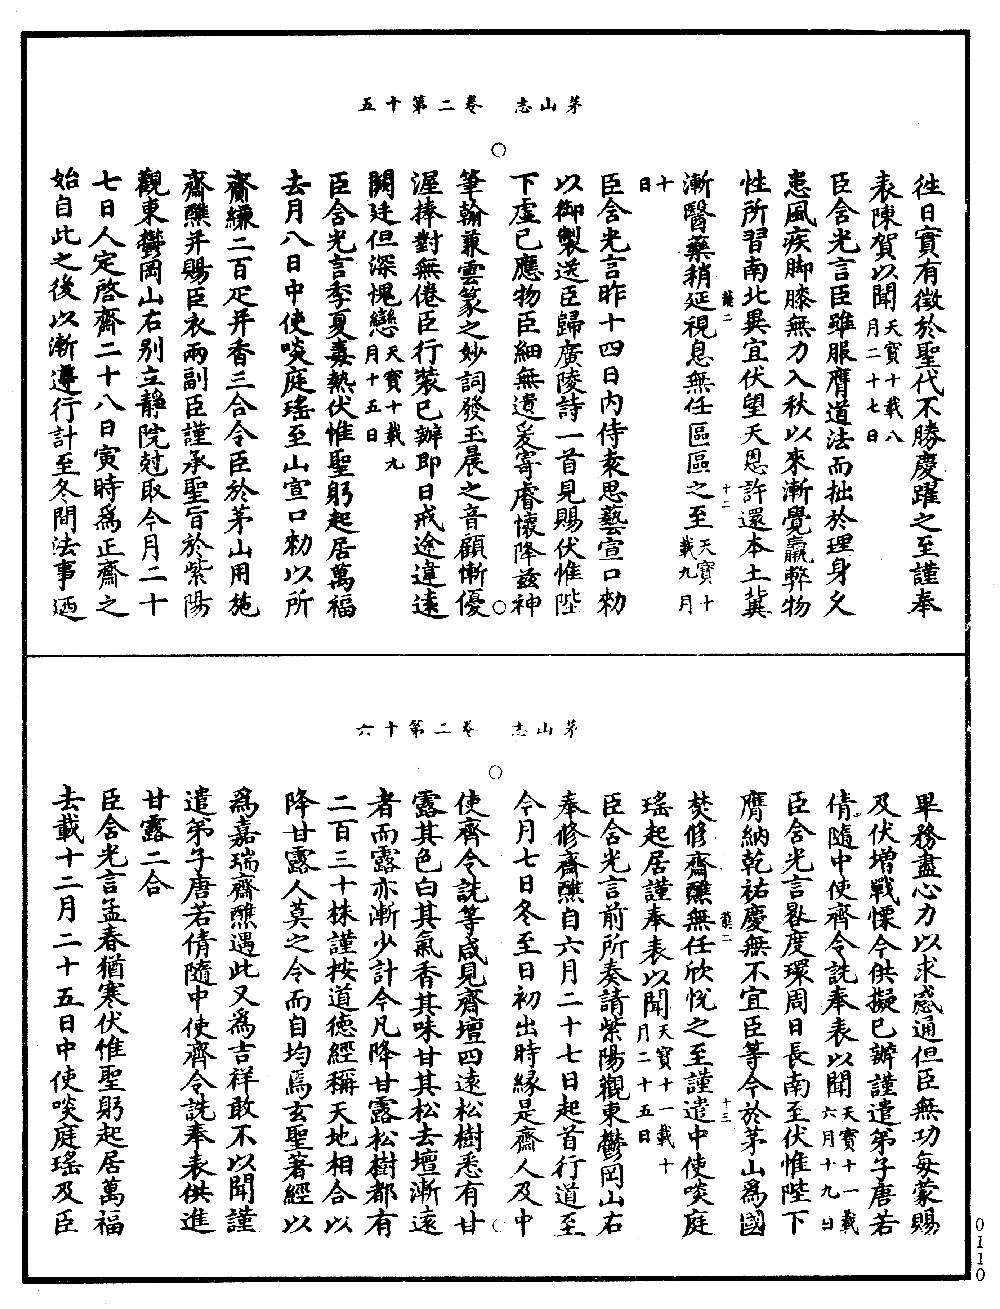 茅山志　卷二第十五
往日實有徵於聖代不勝慶躍之至謹奉
表陳賀以聞天寶十載八月二十七日
臣含光言臣雖服膺道法而拙於理身久
患風疾脚膝無力入秋以來漸覺羸弊物
性所習南北異宜伏望天恩許還本土冀
漸醫藥稍延視息無任區區之至天寶十載九月
十日
臣含光言昨十四日內侍袁思藝宣口勑
以御製送臣歸廣陵詩一首見賜伏惟陛
下虛已應物臣細無遺爰寄睿懷降茲神
筆翰兼雲篆之妙詞發玉晨之音顧慚優
渥捧對無倦臣行裝已辦即日戒途違遠
闕廷但深愧戀天寶十載九月十五日
臣含光言季夏毒熱伏惟聖躬起居萬福
去月八日中使啖庭瑤至山宣口勑以所
齋縑二百疋并香三合令臣於茅山用施
齋醮并賜臣衣兩副臣謹承聖旨於紫陽
觀東鬱岡山右別立靜院尅取今月二十
七日人定啓齋二十八日寅時爲正齋之
始自此之後以漸遵行計至冬間法事迺
茅山志　卷二第十六
畢務盡心力以求感通但臣無功每蒙賜
及伏增戰慄今供擬已辦謹遣弟子唐若
倩隨中使齊令詵奉表以聞天寶十一載六月十九日
臣含光言晷度環周日長南至伏惟陛下
膺納乾祐慶無不宜臣等今於茅山爲國
焚修齋醮無任欣悅之至謹遣中使啖庭
瑤起居謹奉表以聞天寶十一載十月二十五日
臣含光言前所奏請紫陽觀東鬱岡山右
奉修齋醮自六月二十七日起首行道至
今月七日冬至日初出時緣是齋人及中
使齊令詵等咸見齋壇四遠松樹悉有甘
露其色白其氣香其味甘其松去壇漸遠
者而露亦漸少計今凡降甘露松樹都有
二百三十株謹按道德經稱天地相合以
降甘露人莫之令而自均焉玄聖著經以
爲嘉瑞齋醮遇此又爲吉祥敢不以聞謹
遣弟子唐若倩隨中使齊令詵奉表供進
甘露二合
臣含光言孟春猶寒伏惟聖躬起居萬福
去載十二月二十五日中使啖庭瑤及臣
0110